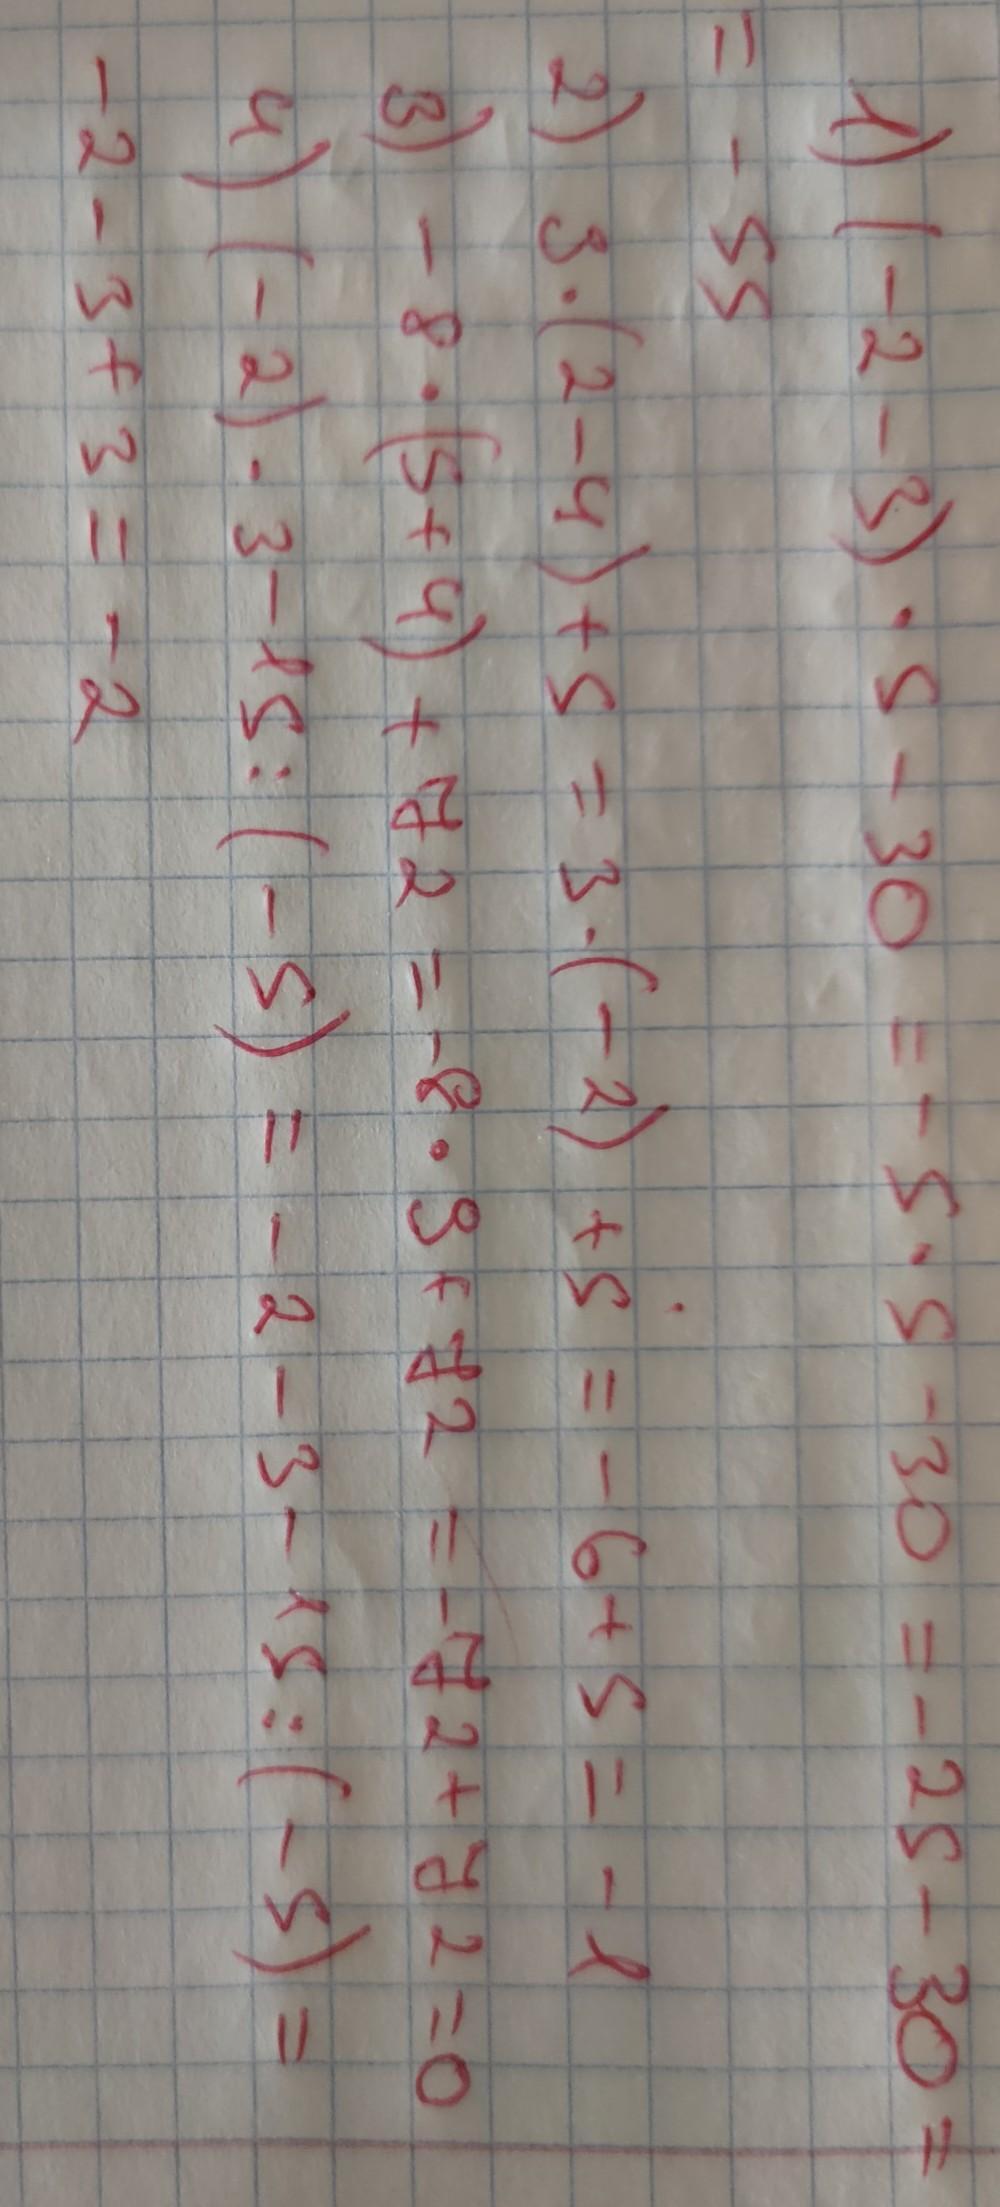 1) (-2-3)·5-30=-5·5-30=-25-30=
=-55
2) 3·(2-4)+5=3·(-2)+5=-6+5=-1
3) -8·(5+4)+72=-8·9+72=-72+72=0
4) (-2)·3-15:(-5)=-2-3-15:(-5)=
-2-3+3=-2